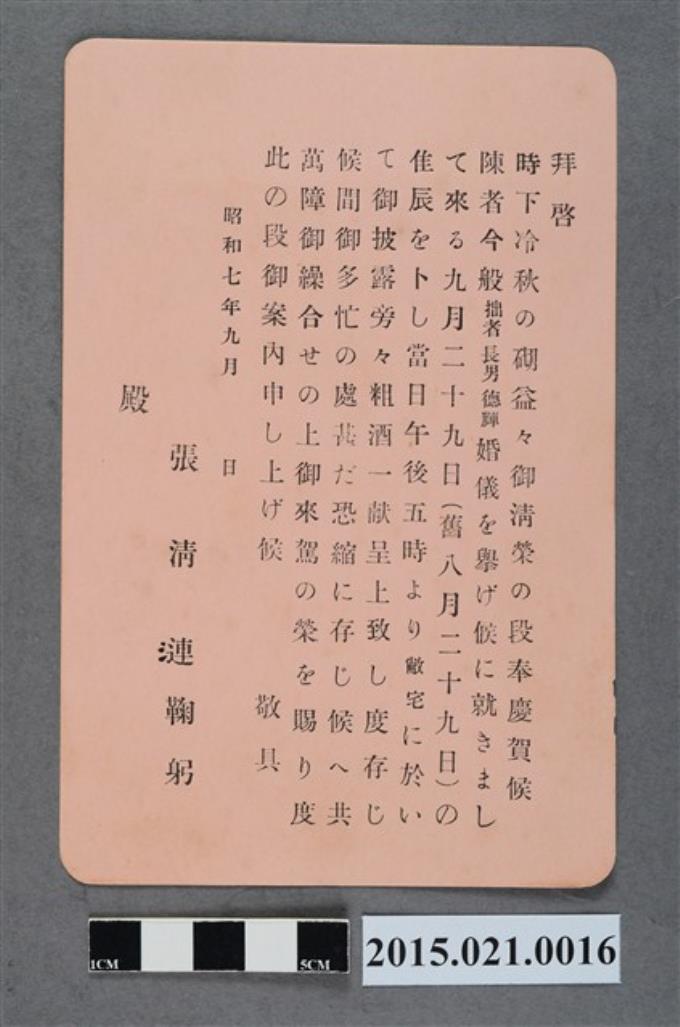 拜啓
時下冷秋の砌益々御淸榮の段奉慶賀候
陳者今般拙者長男德輝婚儀を擧げ候に就きまし
て來る九月二十九日(舊八月二十九日)の
佳辰を卜し當日午後五時より敝宅に於い
て御披露旁々粗酒一献呈上致し度存じ
候間御多忙の處甚だ恐縮に存じ候へ共
萬障御繰合せの上御來駕の榮を賜り度
此の段御案內申し上げ候 敬具
昭和七年九月 日
張淸漣鞠躬
殿
1CM 5CM
2015.021.0016